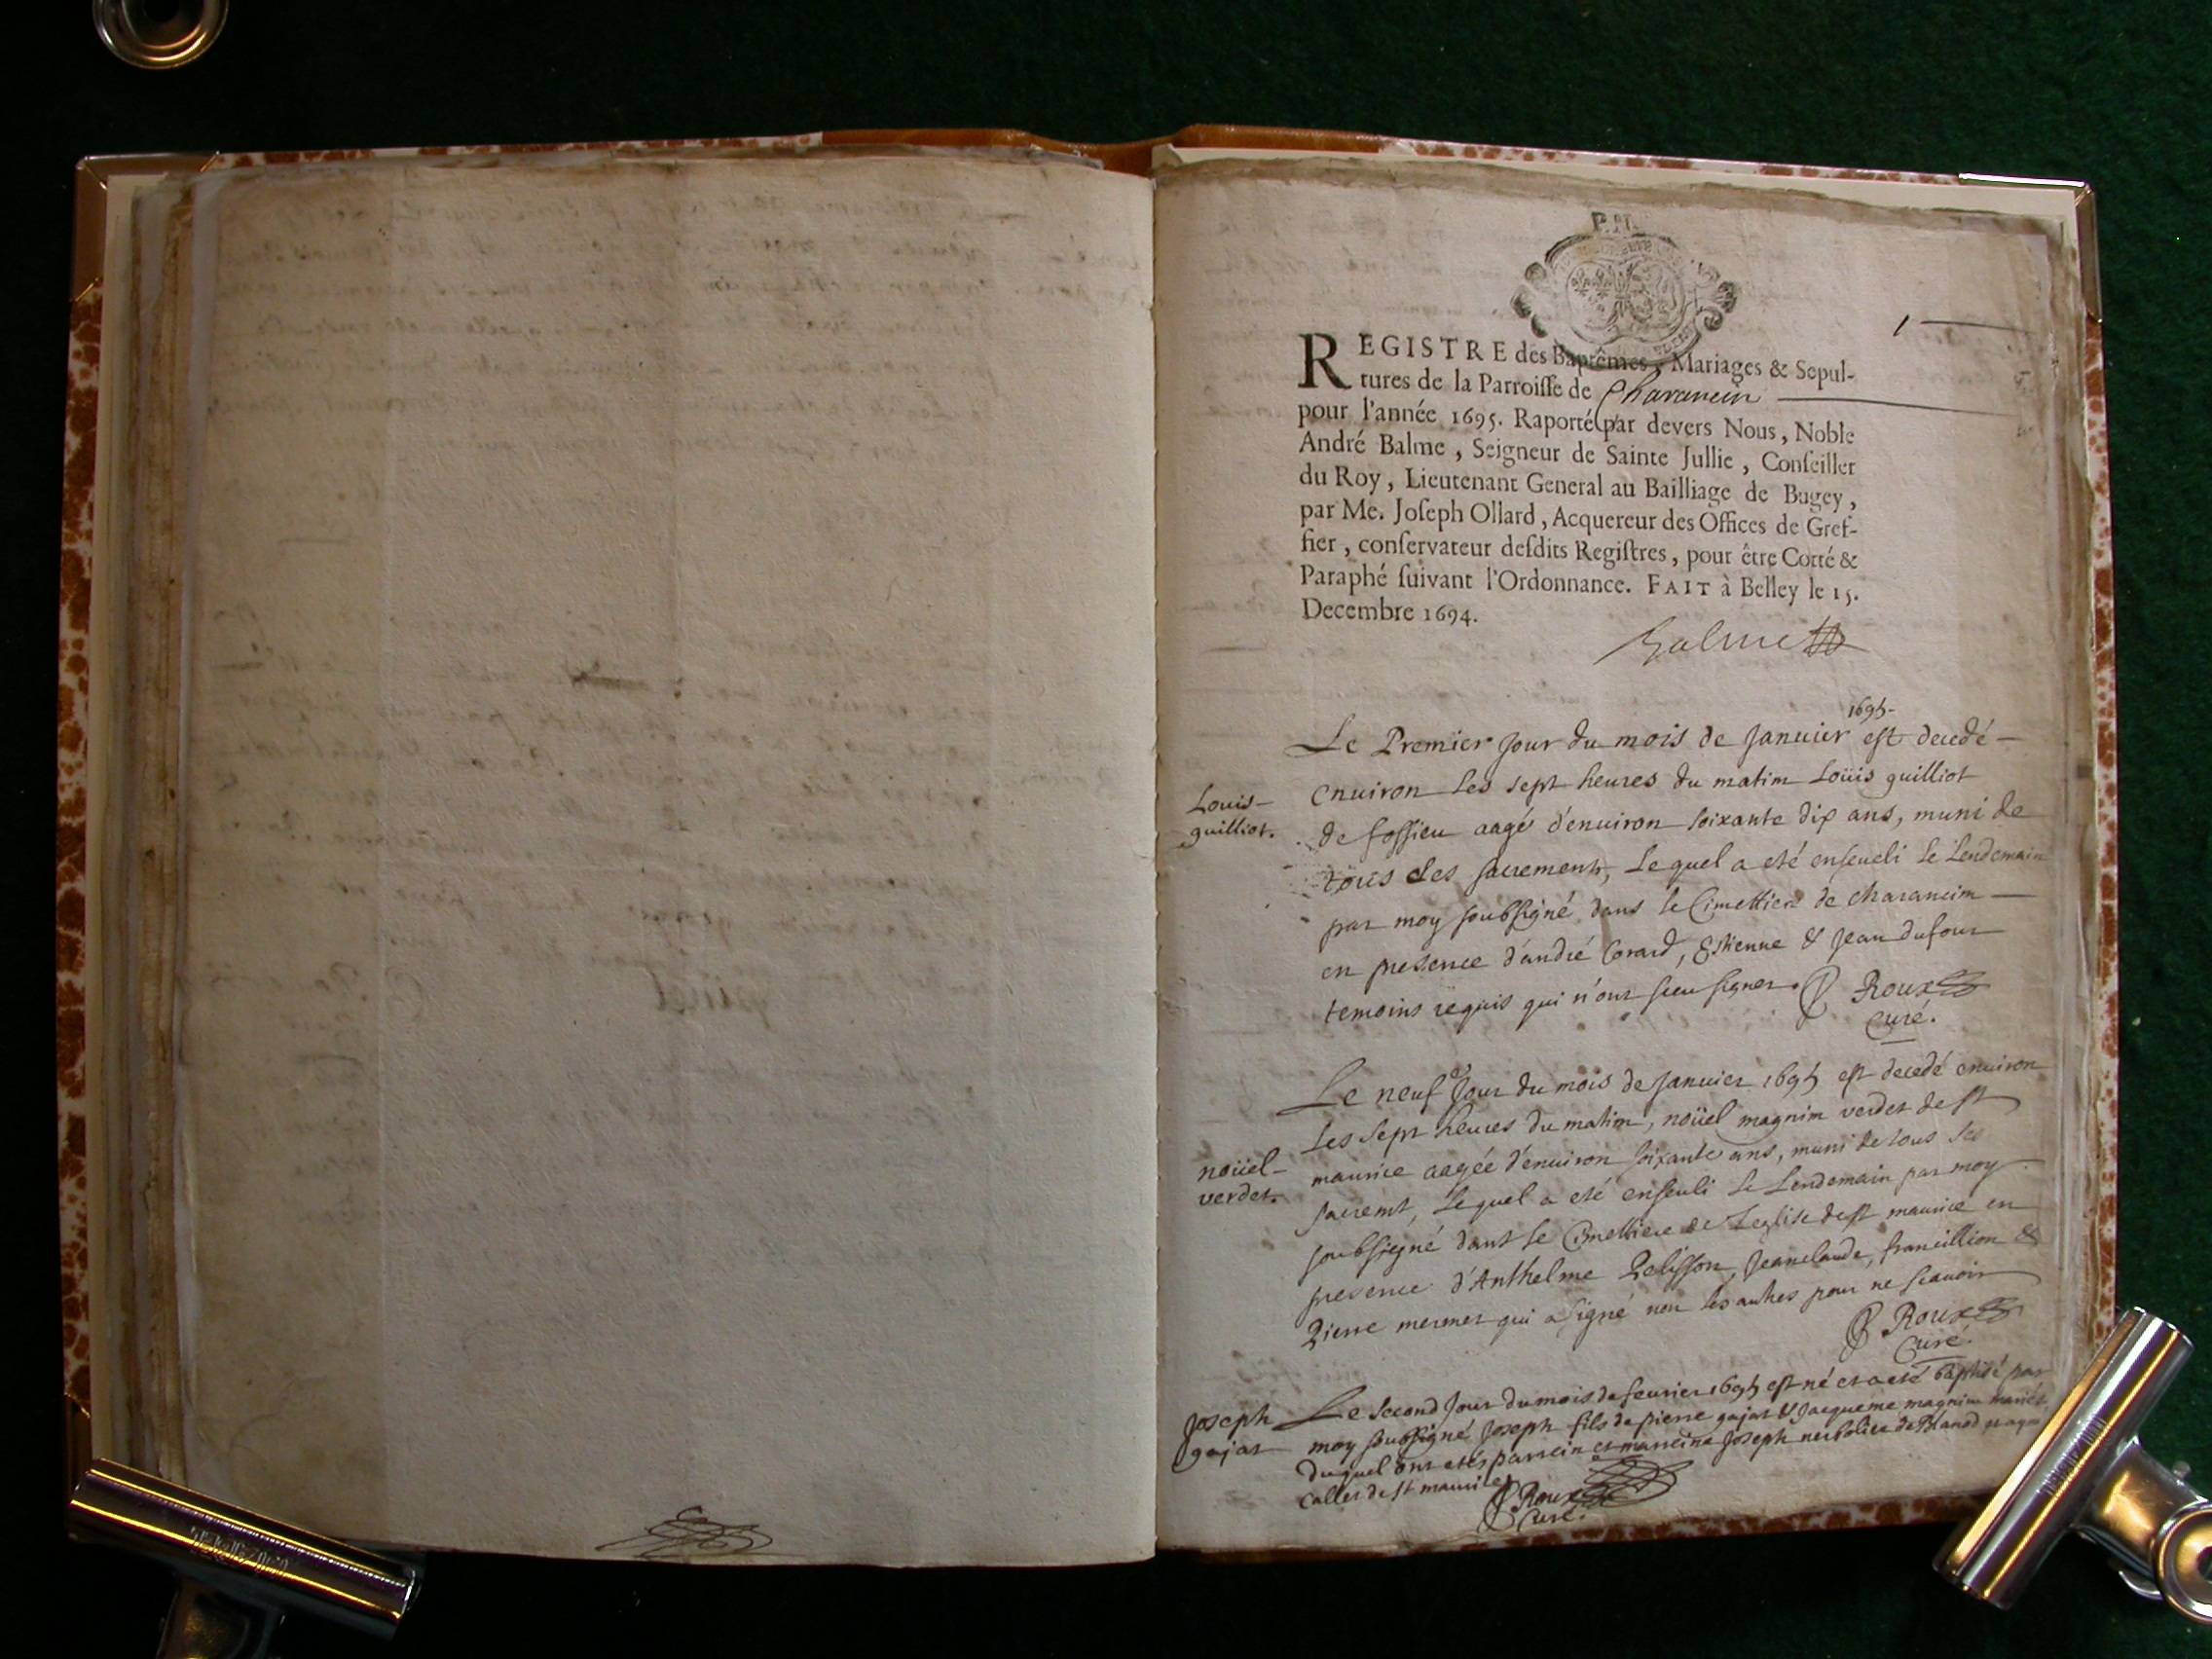 1
REGISTRE des Baptêmes, Mariages & Sepul-
tures de la Parroisse de Charancin
pour l'année 1695. Raporté par devers Nous, Noble
André Balme, Seigneur de Sainte Jullie, Conseiller
du Roy, Lieutenant General au Bailliage de Bugey,
par Me. Joseph Ollard, Acquereur des Offices de Gref-
fier, conservateur desdits Registres, pour être Cotté &
Paraphé suivant l'Ordonnance. FAIT à Belley le 15.
Decembre 1694.
Balme
1695-
Le Premier jour du mois de Januier est decedé
enuiron les sept heures du matim Loüis guilliot
Louis
guilliot.
de fossieu aagé d'enuiron soixante dix ans, muni de
tous les sacrements, Lequel a eté enseueli le Lendemain
par moy soubsigné dans le Cimettiere de charancim
en presence d'andré Corard, Estienne & Jean dufour
temoins requis qui n'ont sceu signer. Roux
Curé.
Le neuf jour du mois de Januier 1695 est decedé enuiron
les sept heures du matim, noüel magnim verdet de st
noüel
verdet.
maurice aagée d'enuiron soixante ans, muni de tous les
sacremt, Lequel a eté enseuli le Lendemain par moy
soubsigné dans le Cimettiere de Leglise de st maurice en
presence d'Anthelme Pelisson, Jeanclaude, francillion &
Pierre mermet qui a signé non les autres pour ne scauoir
Roux
Curé.
Joseph
gojat
Le second jour du mois de feurier 1695 est né et a eté baptisé par
moy soubsigné Joseph fils de pierre gojat & Jacqueme magnim mariés
duquel ont etés parrein et marreine Joseph de
de st maurice
Roux
Curé.